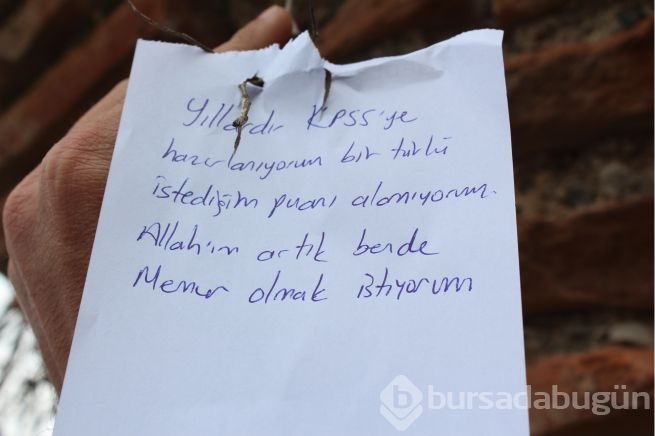 Yıllardır KPSS'ye
hazırlanıyorum bir türlü
istediğim puanı alamıyorum.
Allahım artık bende
Memur olmak istiyorum
bursadabugün